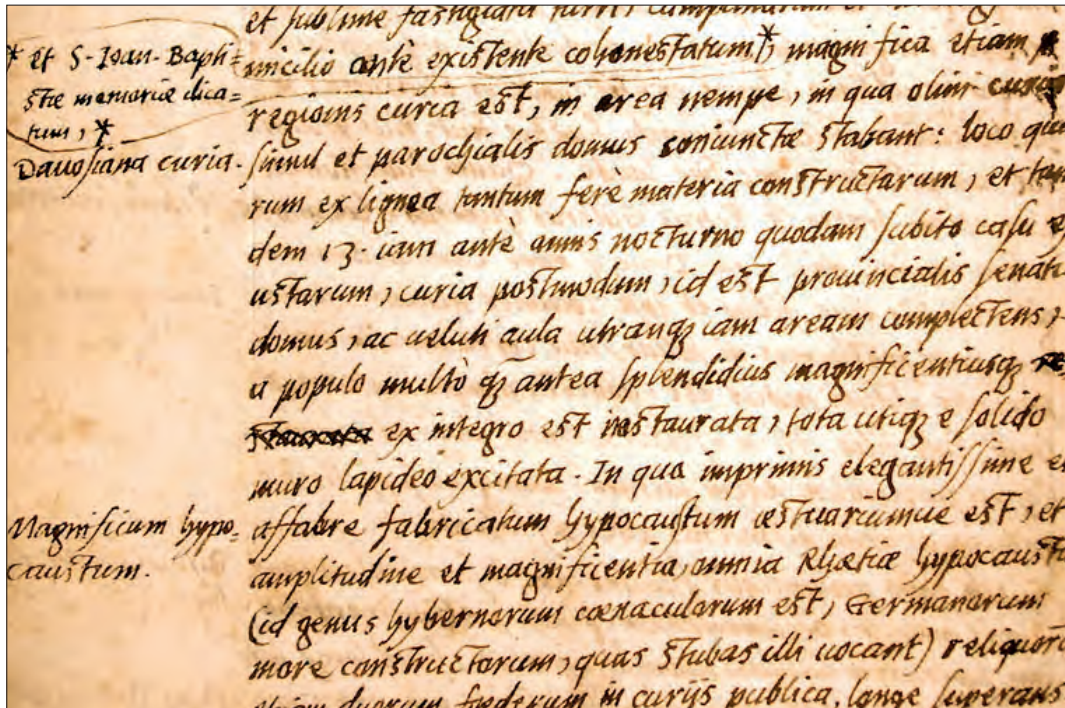 * et S. Ioan. Bapti=
stæ memoriæ dica=
tum, *
Dauosiana curia.
Magnificum hypo=
caustum.
et sublime fastigiatæ turri, campanarum et
micilio antè existente cohonestatum*, magnifica etiam
regionis curia est, in area nempe, in qua olim curia
simul et parochialis domus coniunctæ stabant: loco qua
rum ex lignea tantum ferè materia constructarum, et tan
dem 13. iam antè annis nocturno quodam subito casu
ustarum, curia postmodum, id est prouincialis senat
domus, ac ueluti aula utranqʒ iam aream complectens,
a populo multò q̃ antea splendidius magnificentiusqʒ
ex integro est instaurata, tota utiqʒ e solido
muro lapideo excitata. In qua imprimis elegantissime e
affabre fabricatum hypocaustum æstuariumue est, et
amplitudine et magnificentia, omnia Rhætiæ hypocausta
(id genus hybernorum cœnaculorum est, Germanorum
more constructorum, quas stubas illi uocant) reliquoru
etiam duorum fœderum in curijs publica, longe superans